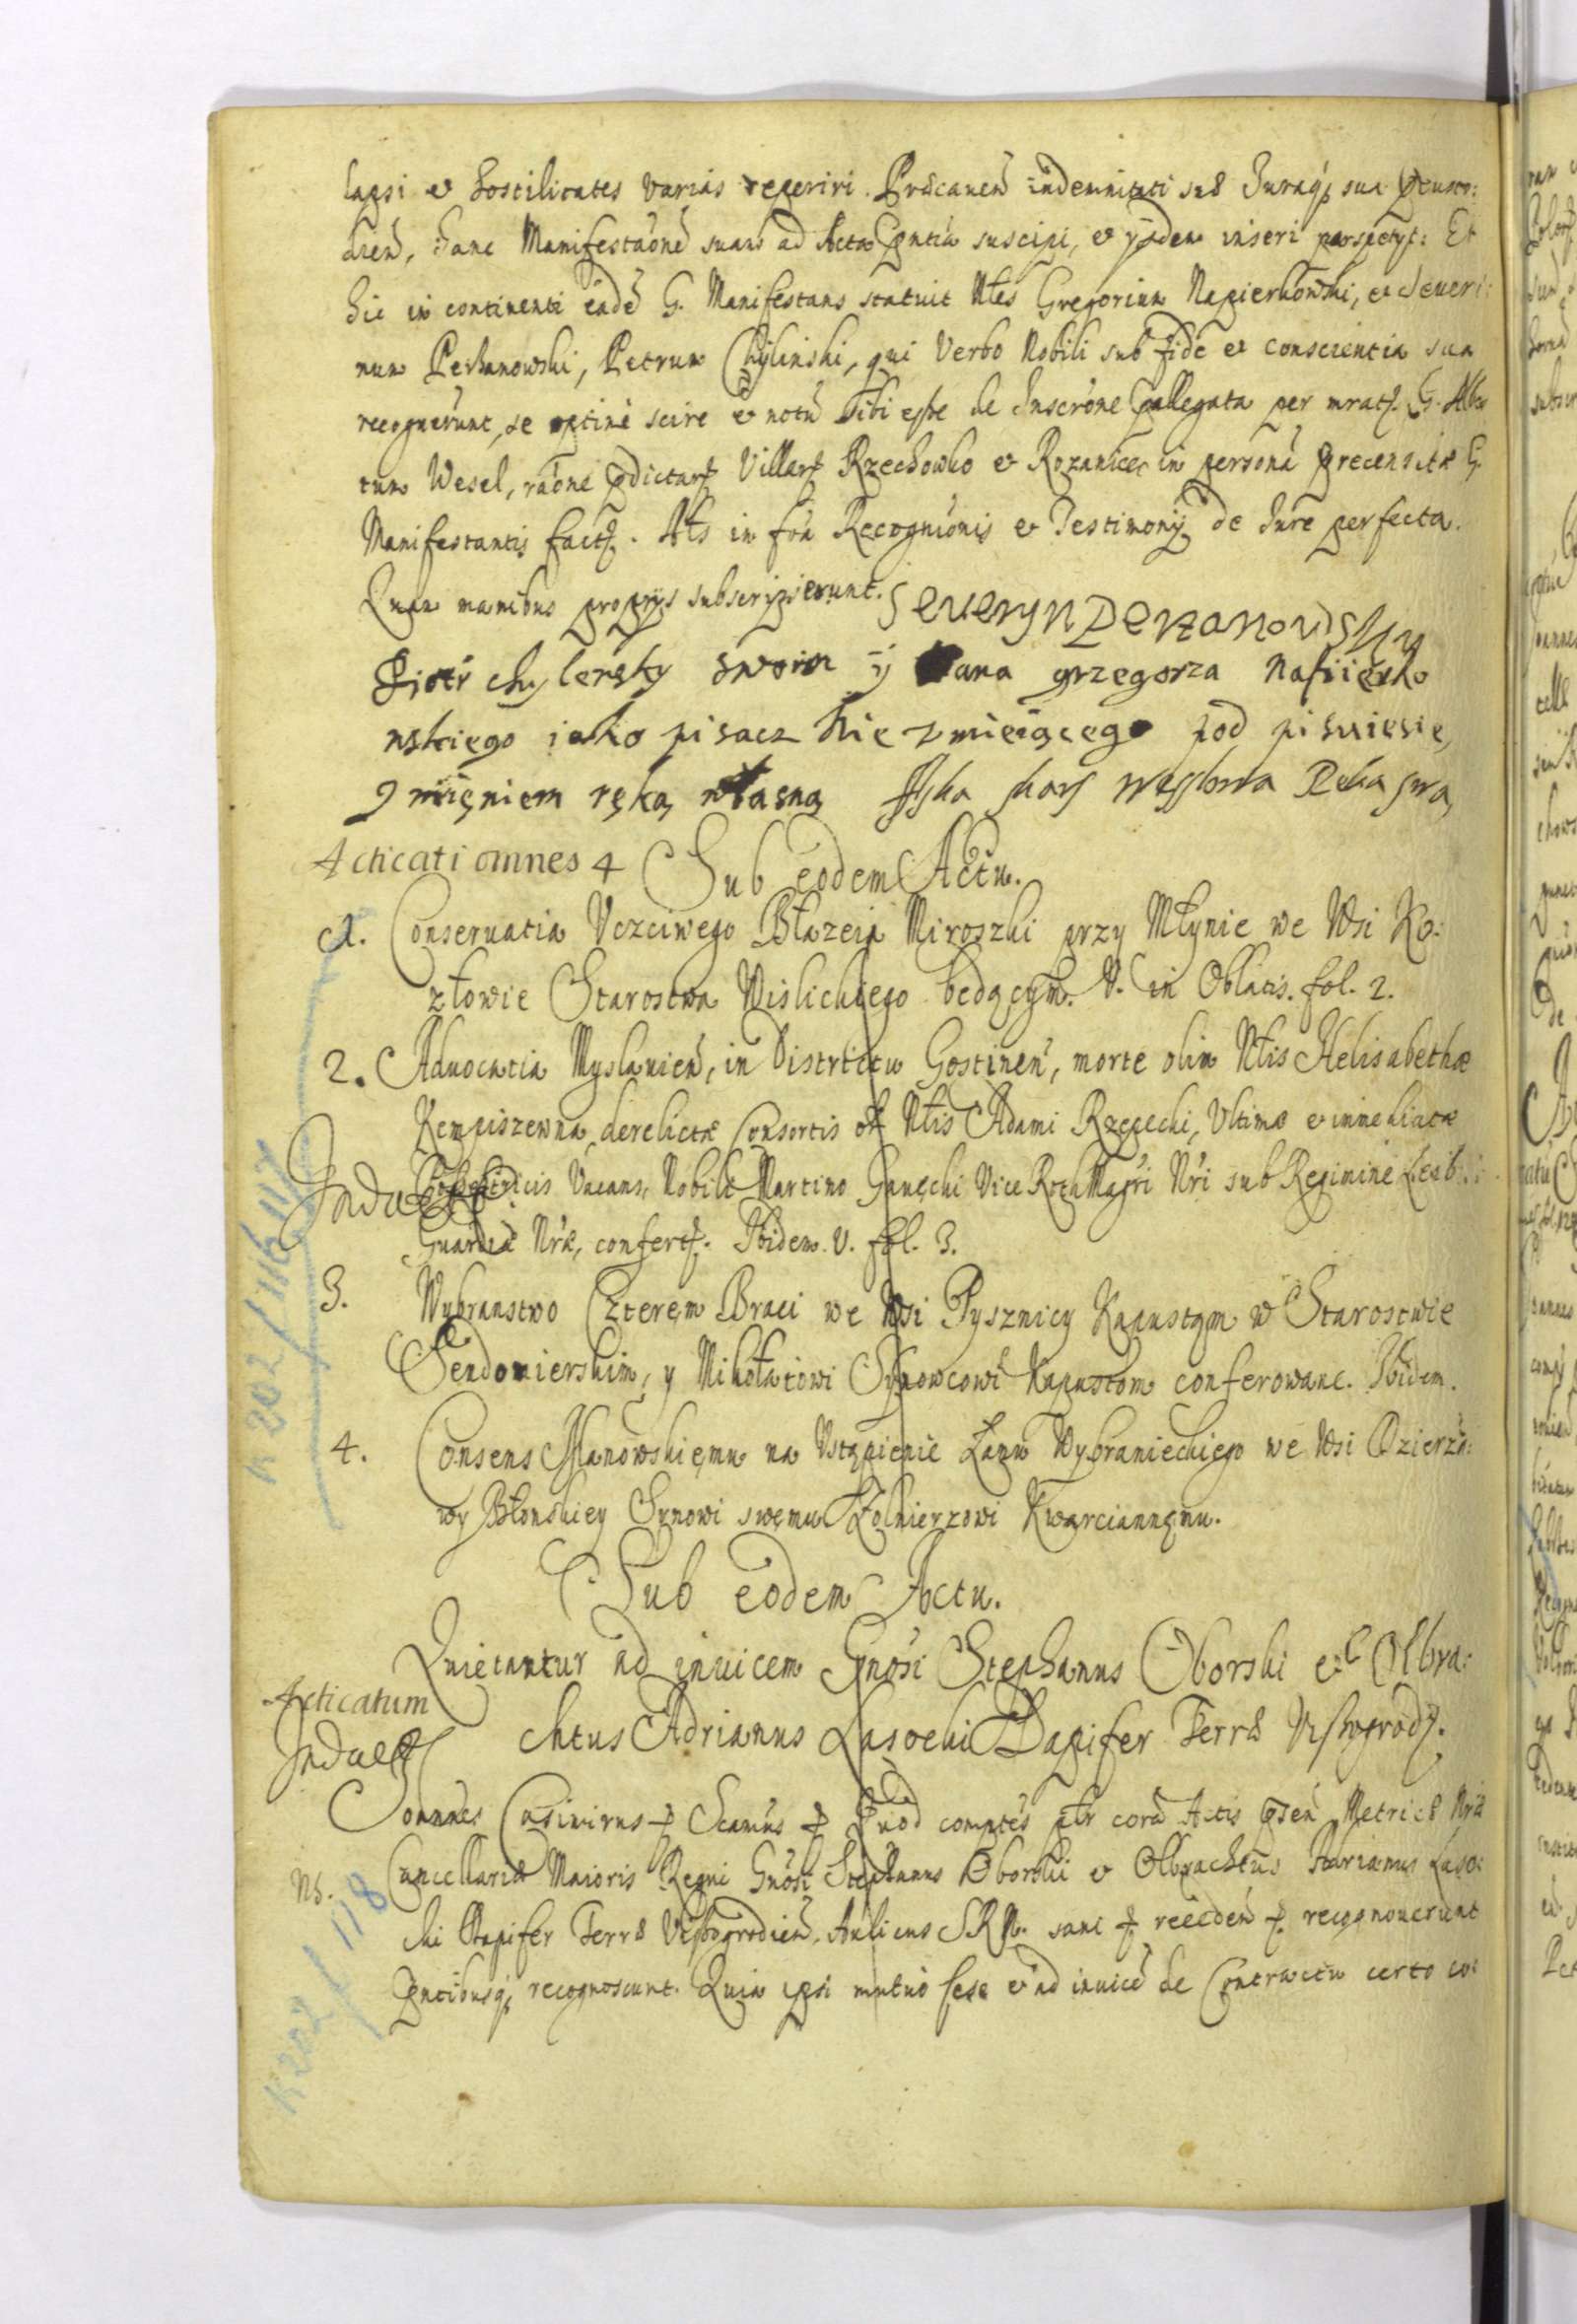 lapsi et hostilitates varias reperiri. Præcauen̄ indemnitati suæ Juraq; sua
dien̄, hanc Manifestaōnē suam ad Acta pn̄tia suscipi, et ijsdem inseri : Et
hic in continenti eadē G. Manifestans statuit Nłes Gregorium Napierkowski, et Seueri:
num Perzanowski, Petrum Chyliński, qui Verbo Nobili sub fide et conscientia sua
recognerunt, se optime scire et notū sibi esse de Inscrōne p̄allegata per G. Alber
tum Wesel, raōne p̄dictarum Villarum Rzechowko et Rozanice, in personā præcensitæ G.
Manifestantis . Als in fōa Recogniōnis et Testimonij de Jure perfecta.
Quam manibus proprijs subscripserunt. Seweryn Perzanowsky
Piotr chylensky swoim ÿ ana grzegorza Napierko
wskiego iako pisacz Nie vmieiącego pod pisuiesie
imięniem ręką własną Ręka swa
Acticati omnes 4 Sub eodem Actu.
1. Conseruatia Vczciwego Błazeia Miroszki przy Młynie we Wsi Ko:
złowie Starostwa Wislickiego będącym. V. in Oblatis. fol. 2.
2. Aduocatia Myslanien̄, in Districtu Gostinen̄, morte olim Nłis Helisabethæ
Kempiszewna, derelictæ Consortis olim Nłis Adami Rzepecki, Ultimæ et immediatæ
Vacans, Nobili Martino Vice RothMagr̄i Nr̄i sub Regimine
Guardiæ Nr̄æ, confertur. Ibidem. V. fol. 3.
3. Wybranstwo Czterem Braci we Wsi Pysznicy Kapustom w Starostwie
Sendomierskim, y Mikołaiowi Synowcowi Kapustom conferowane. Ibidem.
4. Consens na Vstąpienie Łanu Wybranieckiego we Wsi Dzierża:
wy Błonskiey Synowi swemu Zołnierzowi Kwarciannęmu.
Sub eodem Actu.
Quietantur ad inuicem Gn̄osi Stephanus Oborski et Olbra:
Acticatum
chtus Adrianus Lasocki Dapifer Terræ Vissogrod.
Joannes Casimirus Quod comp̄tes coram Actis p̄sen̄ Metricæ Nr̄æ
Ns. Cancellariæ Maioris Regni Gn̄osi Stephanus Oborski et Olbrachtus Adrianus Laso:
cki Dapifer Terræ Vissogrodien̄, Aulicus SRM. sani recognouerunt
pn̄tibusq; recognoscunt. Quia ipsi mutuo sese et ad inuicē de Contractu certo co:
K 202/116, 117
K 202/118